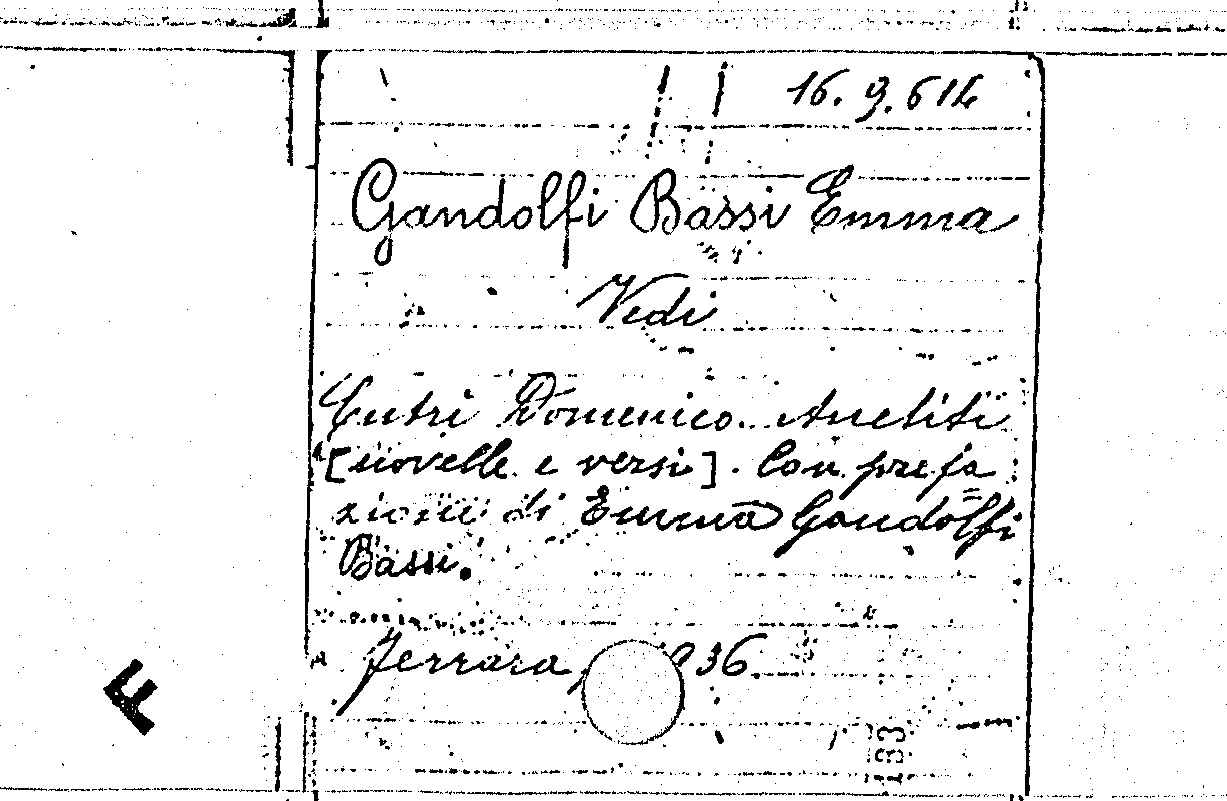 16. 9. 614
Gandolfi Bassi Emma
Vedi
Cutrì Domenico. Aneliti
[novelle e versi]. Con prefa
zione di Emma Gandolfi
Bassi.
Ferrara, 1936.
F